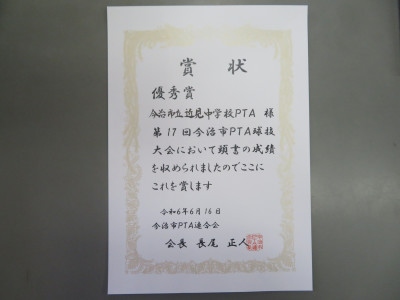 賞状
優秀賞
今治市立近見中学校PTA 様
第17回今治市PTA球技
大会において頭書の成績
を収められましたのでここに
これを賞します
令和6年6月16日
今治市PTA連合会
会長 長尾 正人